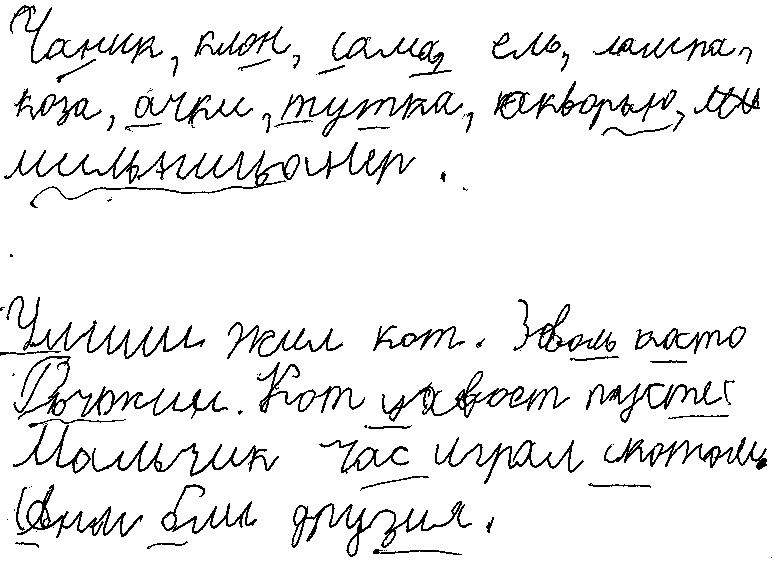 Чаник, клон, сама, ель, лампа,
коза, ачки, тутка, юкворью, ми
мильницыонер.
Умиши жил кот. Зваль косто
Рычжии. Кот цхвост пусте
Мальчик час играл скотом
Они бли друзия.